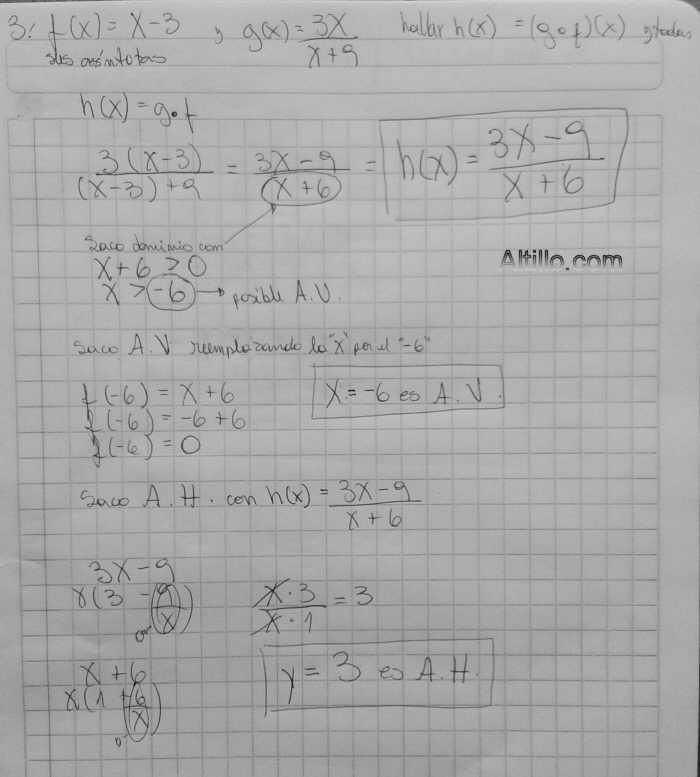 3. f(x) = x-3 , g(x) = 3x / x+9 hallar h(x) = (g∘f)(x) y todas
sus asíntotas
h(x) = g∘f
3(x-3) / (x-3)+9 = 3x-9 / x+6 = h(x) = 3x-9 / x+6
Saco dominio con
x+6 > 0
x > -6 → posible A.V.
Altillo.com
Saco A.V reemplazando la "x" por el "-6"
f(-6) = x+6
f(-6) = -6+6
f(-6) = 0
x = -6 es A.V.
Saco A.H. con h(x) = 3x-9 / x+6
3x-9
x(3 - 9/x)
0
x·3 / x·1 = 3
x+6
x(1 + 6/x)
0
y = 3 es A.H.